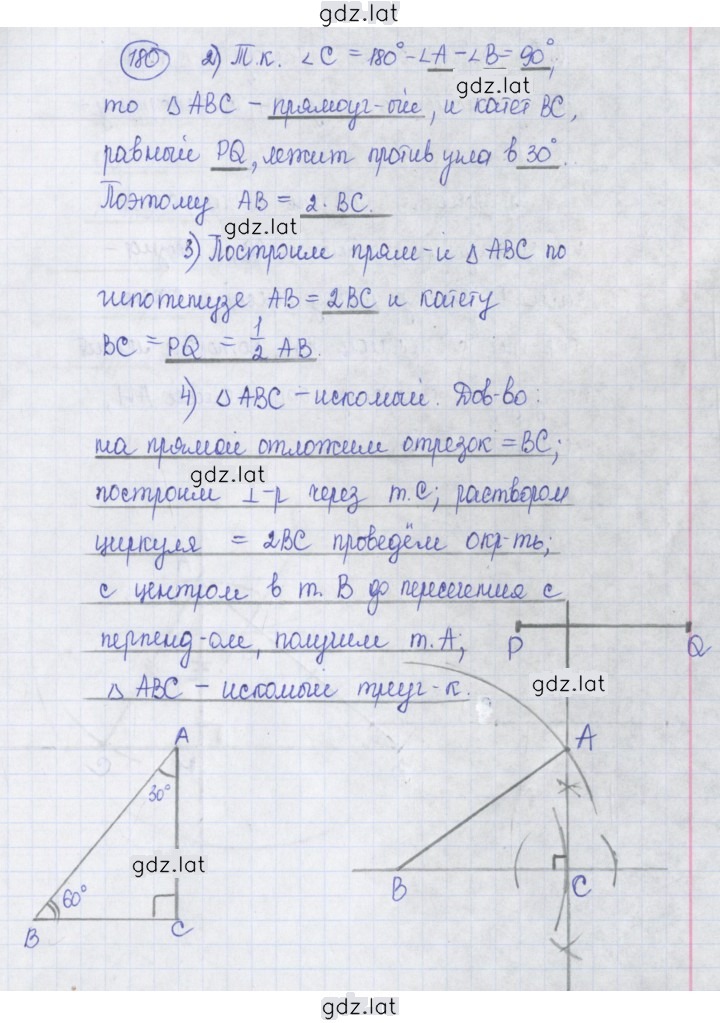 gdz.lat
180 2) Т.к. ∠C = 180° - ∠A - ∠B = 90°,
gdz.lat
то △ABC - прямоуг-ый, и катет BC,
равный PQ, лежит против угла в 30°.
Поэтому AB = 2·BC.
gdz.lat
3) Построим прям-й △ABC по
гипотенузе AB = 2BC и катету
BC = PQ = 1/2 AB.
4) △ABC - искомый. Док-во:
на прямой отложим отрезок = BC;
gdz.lat
построим ⊥-р через т. C; раствором
циркуля = 2BC проведём окр-ть;
с центром в т. B до пересечения с
перпенд-ом, получим т. A;
△ABC - искомый треуг-к.
P Q
gdz.lat
A
30°
60°
B C
gdz.lat
A
B C
gdz.lat